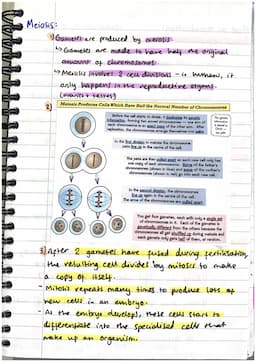 Meiosis:
1) Gametes are produced by meiosis.
↳ Gametes are made to have half the original
amount of chromosomes.
↳ Meiosis involves 2 cell divisions - in humans, it
only happens in the reproductive organs.
(ovaries + testes)
2) Meiosis Produces Cells Which Have Half the Normal Number of Chromosomes
Before the cell starts to divide, it duplicates its genetic
information, forming two armed chromosomes — one arm of
each chromosome is an exact copy of the other arm. After
replication, the chromosomes arrange themselves into pairs.
In the first division in meiosis the chromosome
pairs line up in the centre of the cell.
The pairs are then pulled apart so each new cell only has
one copy of each chromosome. Some of the father's
chromosomes (shown in blue) and some of the mother's
chromosomes (shown in red) go into each new cell.
In the second division, the chromosomes
line up again in the centre of the cell.
The arms of the chromosomes are pulled apart.
You get four gametes, each with only a single set
of chromosomes in it. Each of the gametes is
genetically different from the others because the
chromosomes all get shuffled up during meiosis and
each gamete only gets half of them, at random.
3) After 2 gametes have fused during fertilisation,
the resulting cell divides by mitosis to make
a copy of itself.
- Mitosis repeats many times to produce lots of
new cells in an embryo.
- As the embryo develops, these cells start to
differentiate into the specialised cells that
make up an organism.